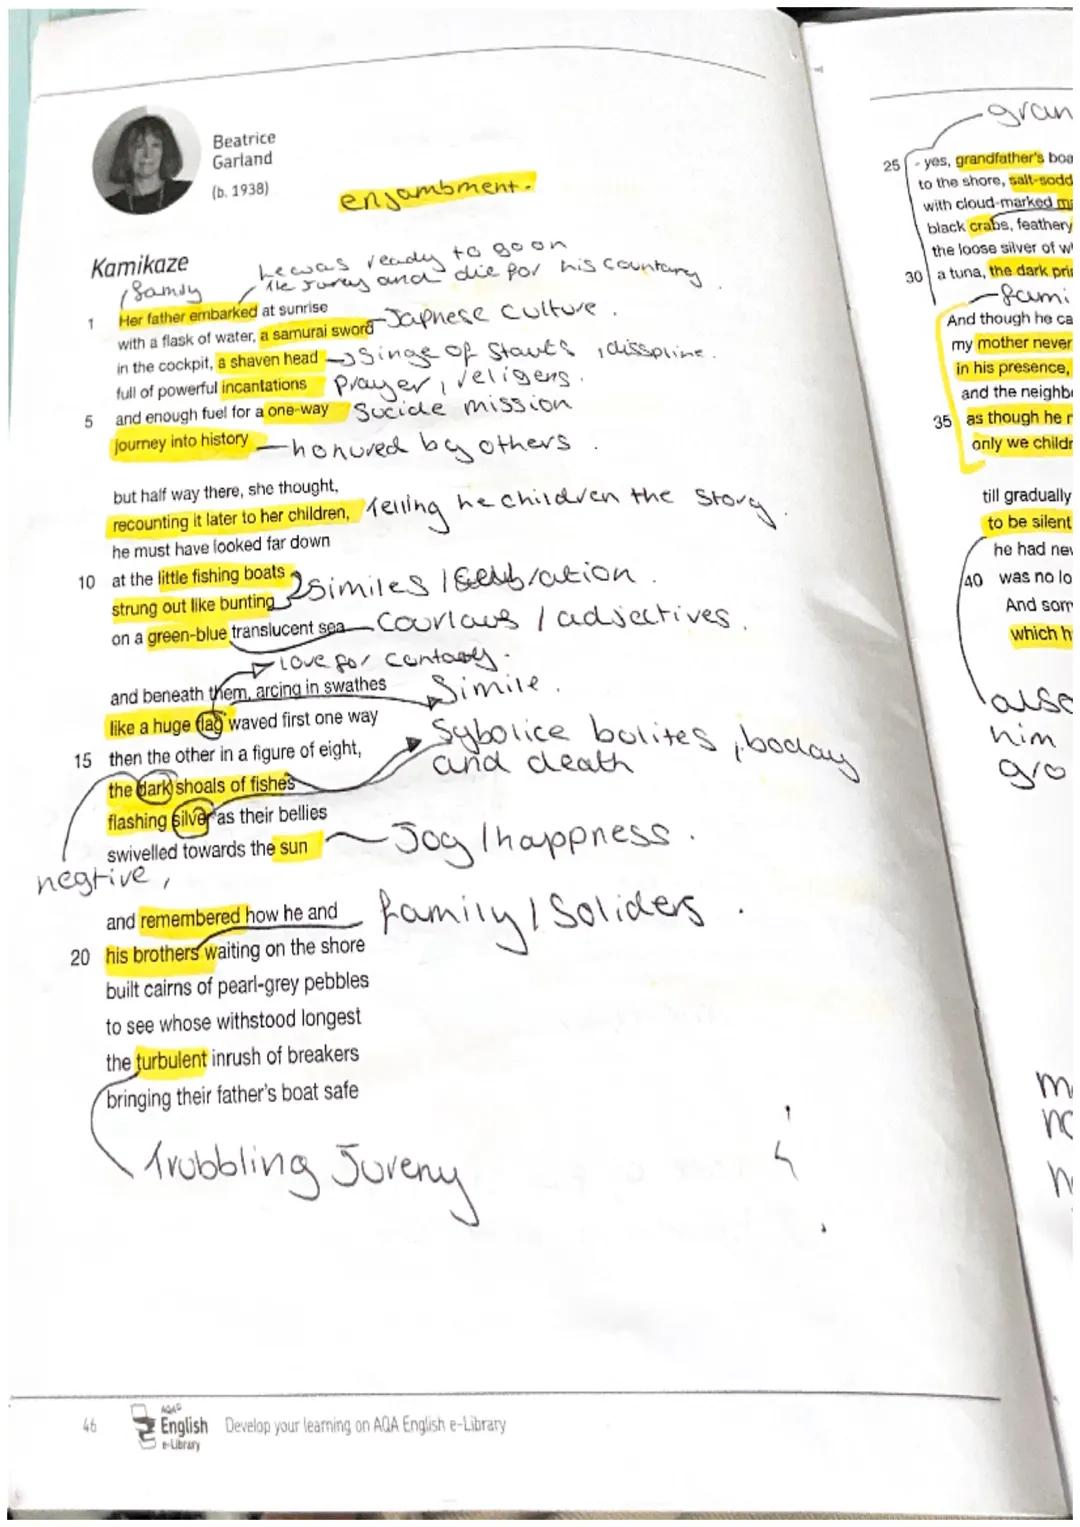 Beatrice
Garland
(b. 1938)
enjambment.
Kamikaze
family
he was ready to go on
the jurey and die for his countary
1 Her father embarked at sunrise
with a flask of water, a samurai sword Japnese culture.
in the cockpit, a shaven head singe of , disspline.
full of powerful incantations Prayer, religens.
5 and enough fuel for a one-way Sucide mission
journey into history honured by others.
but half way there, she thought,
recounting it later to her children, Telling he children the story.
he must have looked far down
10 at the little fishing boats
strung out like bunting similes / .
on a green-blue translucent sea / adjectives.
Love for .
and beneath them, arcing in swathes Simile.
like a huge flag waved first one way
15 then the other in a figure of eight,
Sybolice bolites, boday
and death
the dark shoals of fishes
flashing silver as their bellies
swivelled towards the sun Joy / happness.
negtive,
and remembered how he and family / Soliders.
20 his brothers waiting on the shore
built cairns of pearl-grey pebbles
to see whose withstood longest
the turbulent inrush of breakers
bringing their father's boat safe
Trubbling Jureny
46 AQA English e-Library Develop your learning on AQA English e-Library
gran
25 - yes, grandfather's boa
to the shore, salt-sodd
with cloud-marked ma
black crabs, feathery
the loose silver of w
30 a tuna, the dark prin
fami
And though he ca
my mother never
in his presence,
and the neighb
35 as though he
only we childr
till gradually
to be silent
he had nev
40 was no lo
And som
which h
also
him
gro